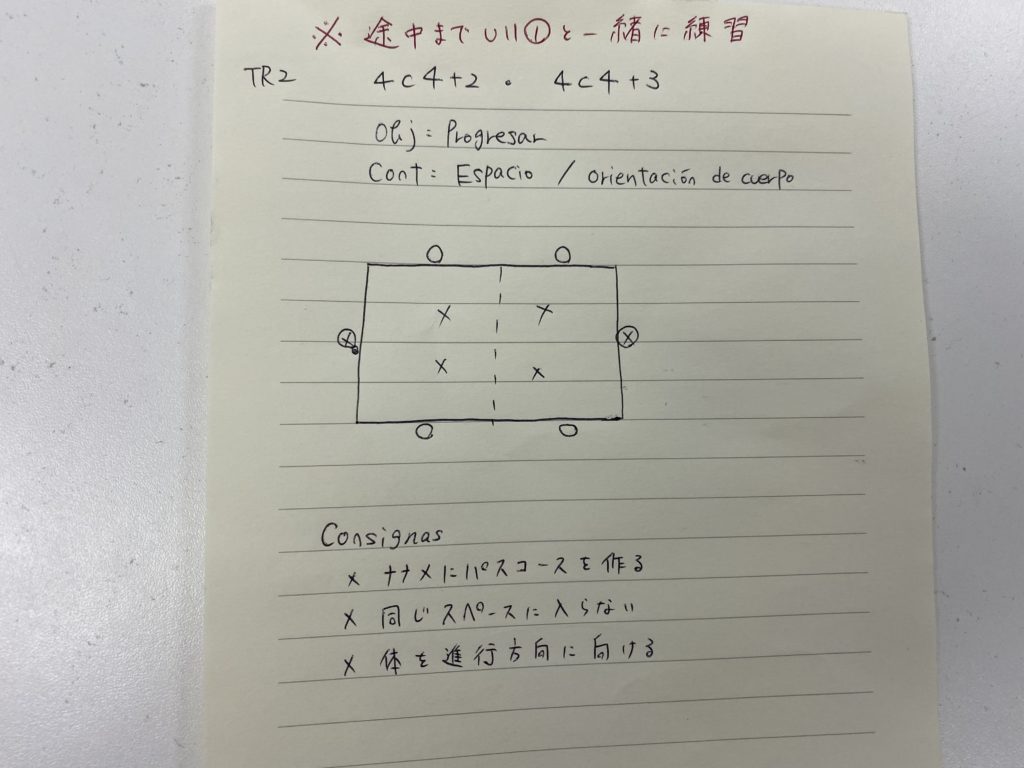 ※ 途中まで U11①と一緒に練習
TR2 4c4+2 . 4c4+3
Obj: Progresar
Cont: Espacio / orientación de cuerpo
Consignas
× ナナメにパスコースを作る
× 同じスペースに入らない
× 体を進行方向に向ける